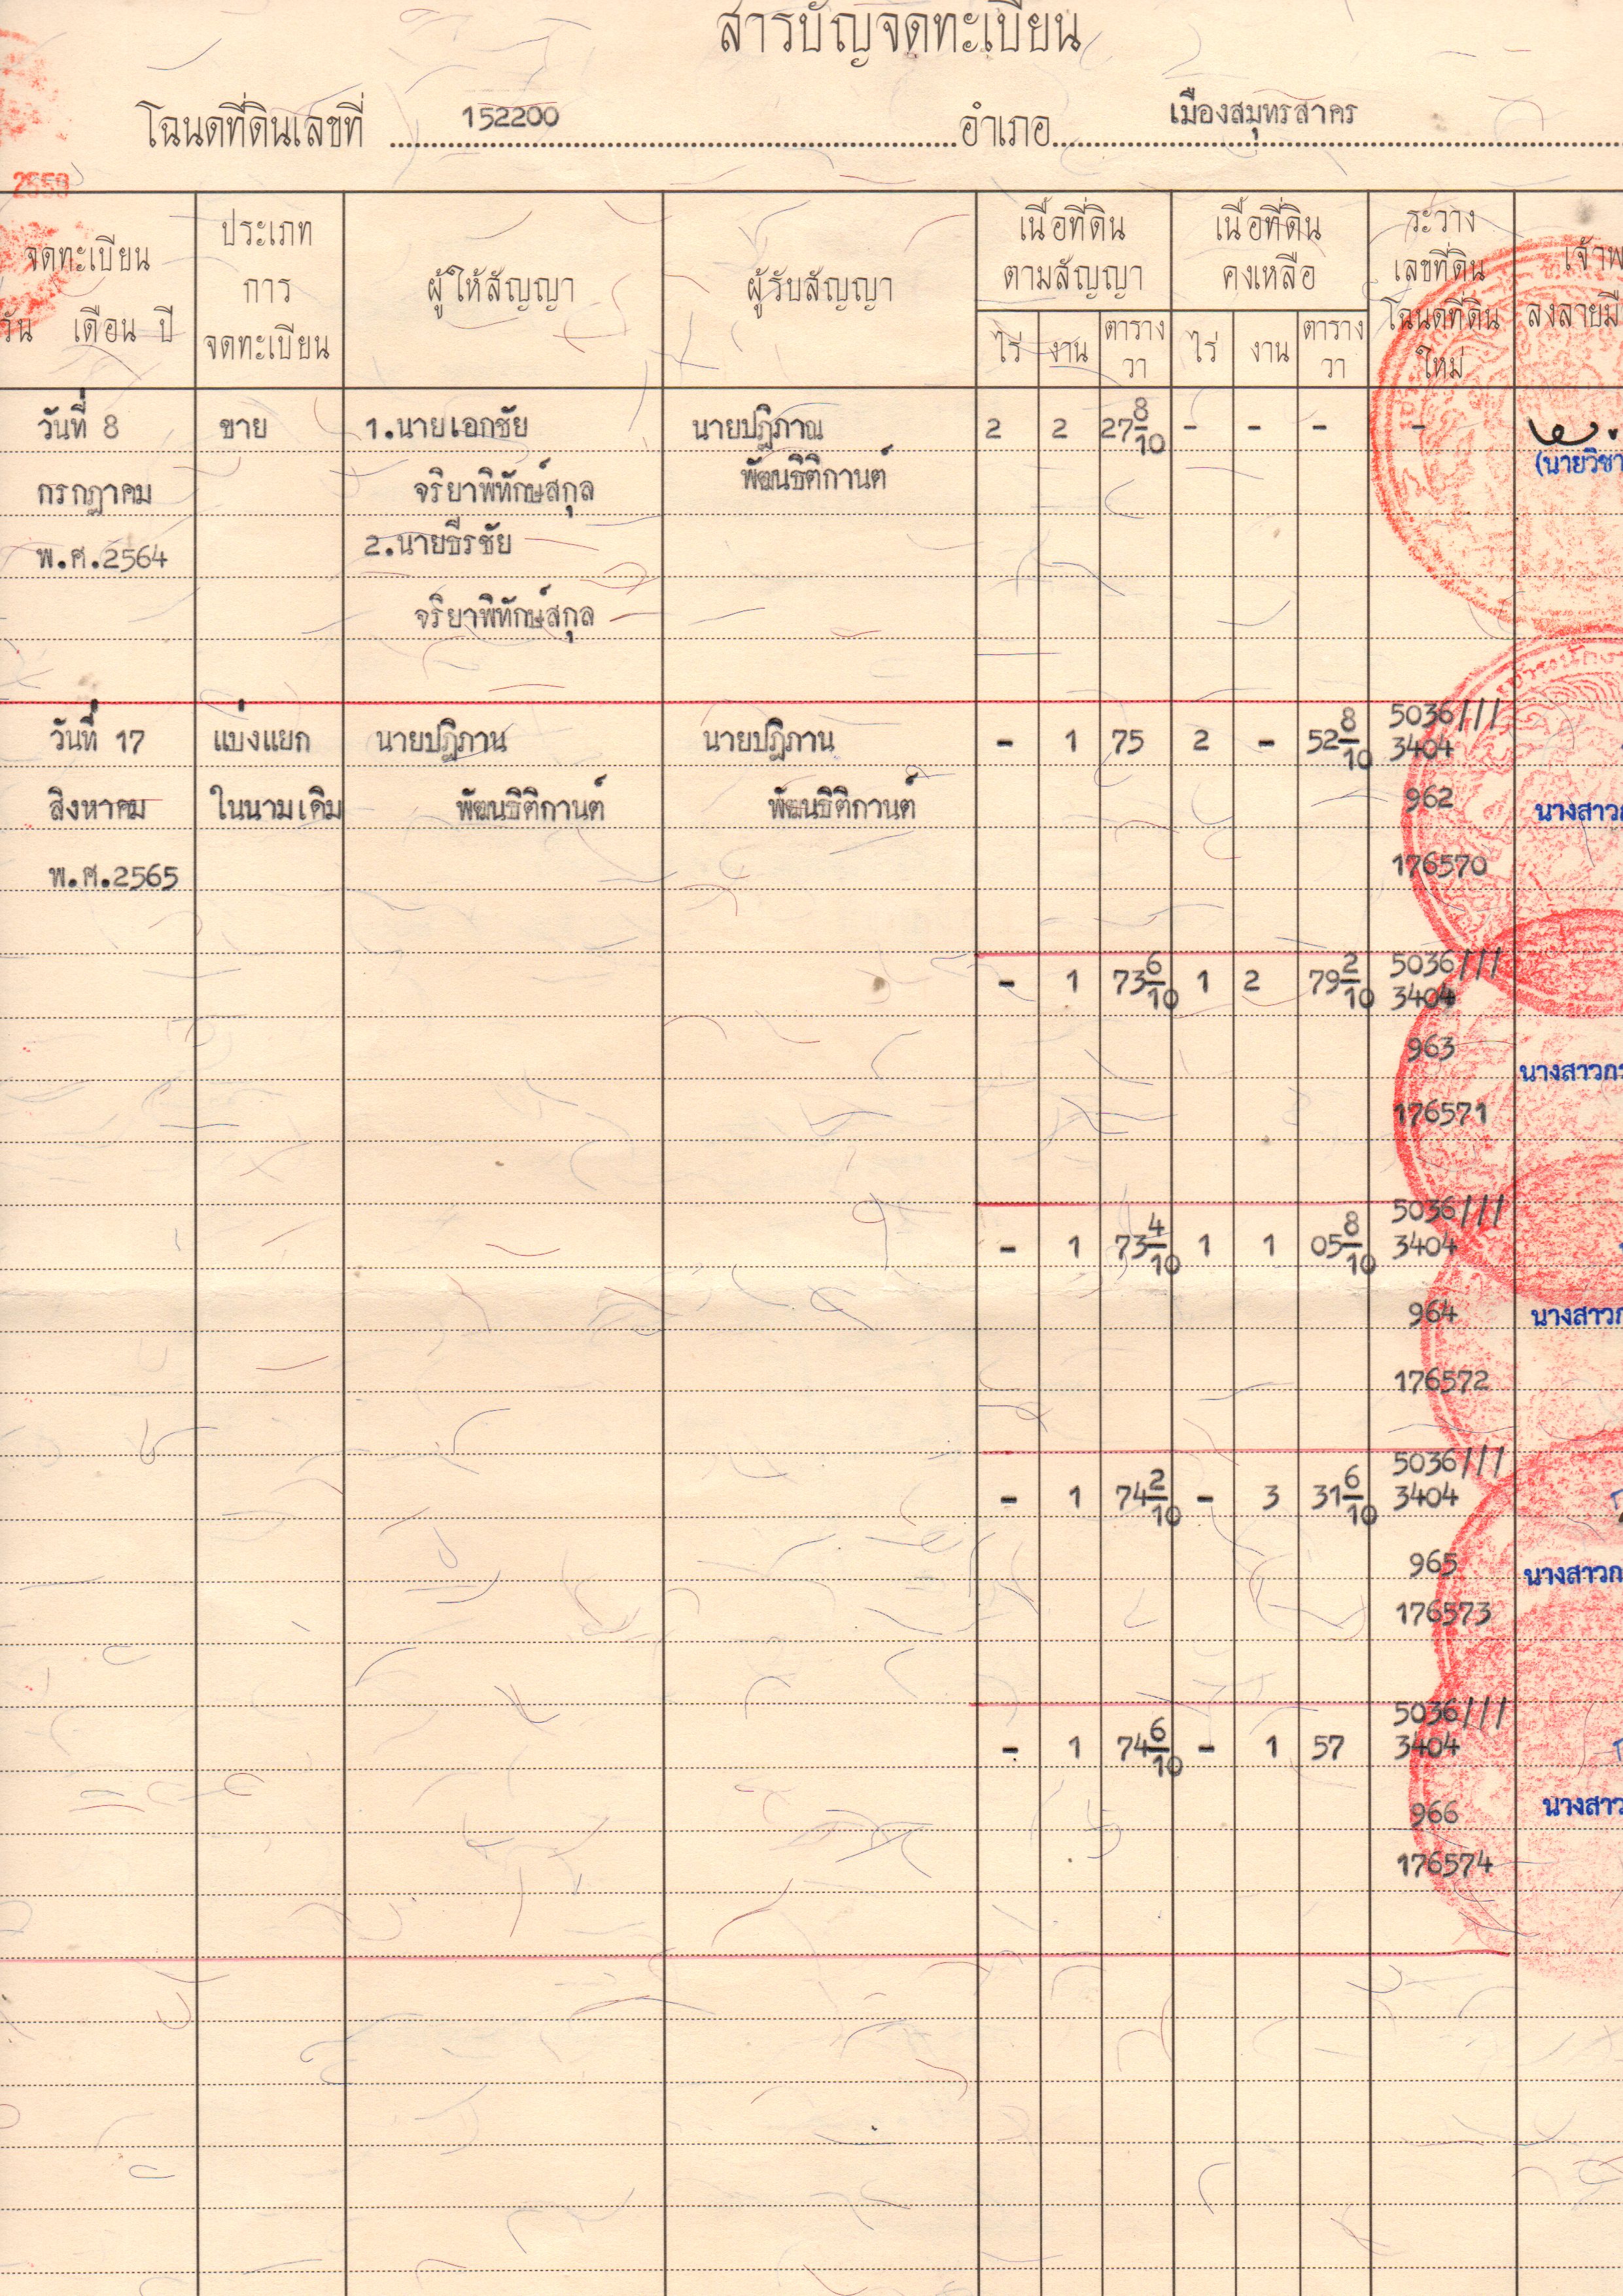 สารบัญจดทะเบียน
โฉนดที่ดินเลขที่ 152200 อำเภอ เมืองสมุทรสาคร
2559
จดทะเบียน
วัน เดือน ปี
ประเภท
การ
จดทะเบียน
ผู้ให้สัญญา
ผู้รับสัญญา
เนื้อที่ดิน
ตามสัญญา
ไร่ งาน ตาราง
วา
เนื้อที่ดิน
คงเหลือ
ไร่ งาน ตาราง
วา
ระวาง
เลขที่ดิน
โฉนดที่ดิน
ใหม่
ลงลายมือ
วันที่ 8 ขาย 1.นายเอกชัย นายปฏิภาณ 2 2 27 8/10 - - - -
กรกฎาคม จริยาพิทักษ์สกุล พัฒนธิติกานต์
พ.ศ.2564 2.นายธีรชัย
จริยาพิทักษ์สกุล
(นายวิชา
วันที่ 17 แบ่งแยก นายปฏิภาน นายปฏิภาน - 1 75 2 - 52 8/10 5036///
3404
สิงหาคม ในนามเดิม พัฒนธิติกานต์ พัฒนธิติกานต์ 962 นางสาว
พ.ศ.2565 176570
- 1 73 6/10 1 2 79 2/10 5036///
3404
963
นางสาวกร
176571
- 1 73 4/10 1 1 05 8/10 5036///
3404
964 นางสาวก
176572
- 1 74 2/10 - 3 31 6/10 5036///
3404
965 นางสาวก
176573
- 1 74 6/10 - 1 57 5036///
3404
966 นางสาว
176574